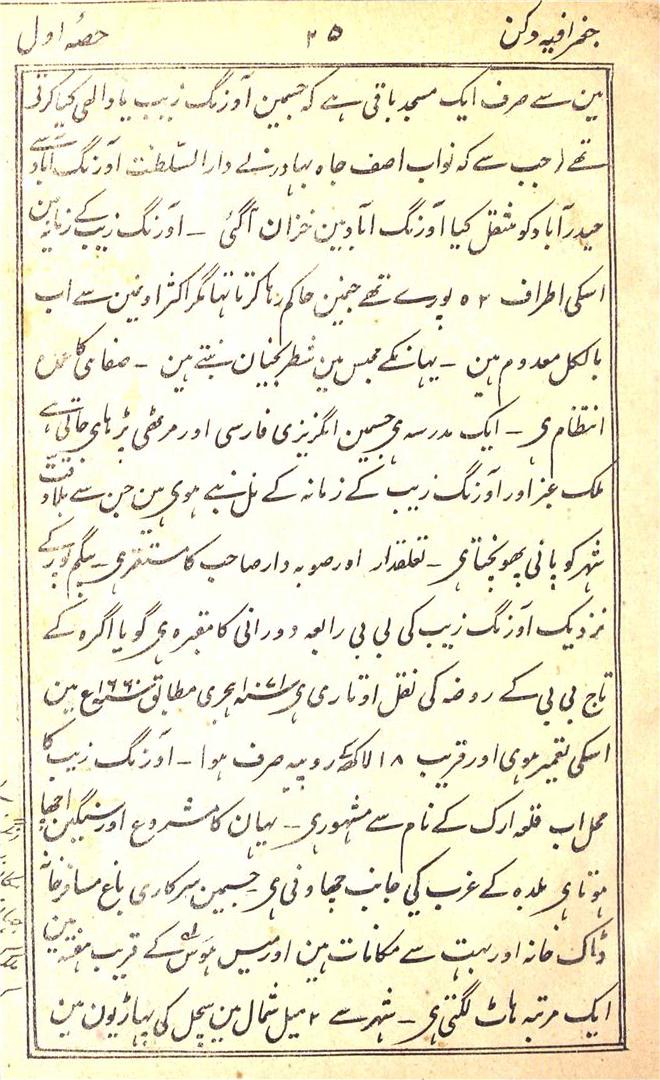 جغرافیہ دکن ۲۵ حصّہ اول
مین سے صرف ایک مسجد باقی ہے کہ جسمین آورنگ زیب یاد الہی کیا کرتی
تھے (جب سے کہ نواب اصف جاہ بہادر نے دار السّلطنت آورنگ آباد سے
حیدرآباد کو منتقل کیا آورنگ آباد مین خزان آگئی ـ اورنگ زیب کے زمانہ مین
اسکی اطراف ۵۲ پورے تھے جنمین حاکم رہا کرتا تہا مگر اکثر اونمین سے اب
بالکل معدوم ہین ـ یہانکے محبس مین شطرنجیان بنتے ہین ـ صفائی کا عمدہ
انتظام ہی ـ ایک مدرسہ ہی جسمین انگریزی فارسی اور مرہٹی پڑہای جاتی ہے
ملک عنبر اور آورنگ زیب کے زمانہ کے نل بنے ہوی ہین جن سے بلا دقت
شہر کو پانی پھونچتا ہی ـ تعلقدار اور صوبہ دار صاحب کا مستقر ہی ـ بیگم پور کے
نزدیک آورنگ زیب کی بی بی رابعہ دورانی کا مقبرہ ہی گویا اگرہ کے
تاج بی بی کے روضہ کی نقل اوتاری ہی سنہ ۱۰۷۱ ہجری مطابق سنہ ۱۶۶۰ع مین
اسکی تعمیر ہوی اور قریب ۱۸ لاکھ کے روپیہ صرف ہوا ـ اورنگ زیب کا
محل اب قلعہ ارک کے نام سے مشہور ہی ـ یہان کا مشروع اور سنگین اچھا
ہوتا ہی بلدہ کے غرب کی جانب چھاونی ہی جسمین سرکاری باغ مسافر خانہ
ڈاک خانہ اور بہت سے مکانات ہین اور میس ہوس کے قریب ہفتہ مین
ایک مرتبہ ہاٹ لگتی ہی ـ شہر سے ۲ میل شمال مین سچل کی پہاڑیون مین